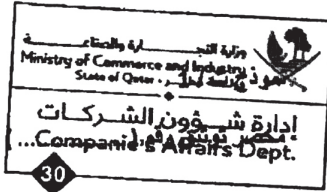 وزارة التجـــــارة والصناعـــة
Ministry of Commerce and Industry
State of Qatar
إدارة شـــؤون الشركـــات
...Companie's Affairs Dept.
30